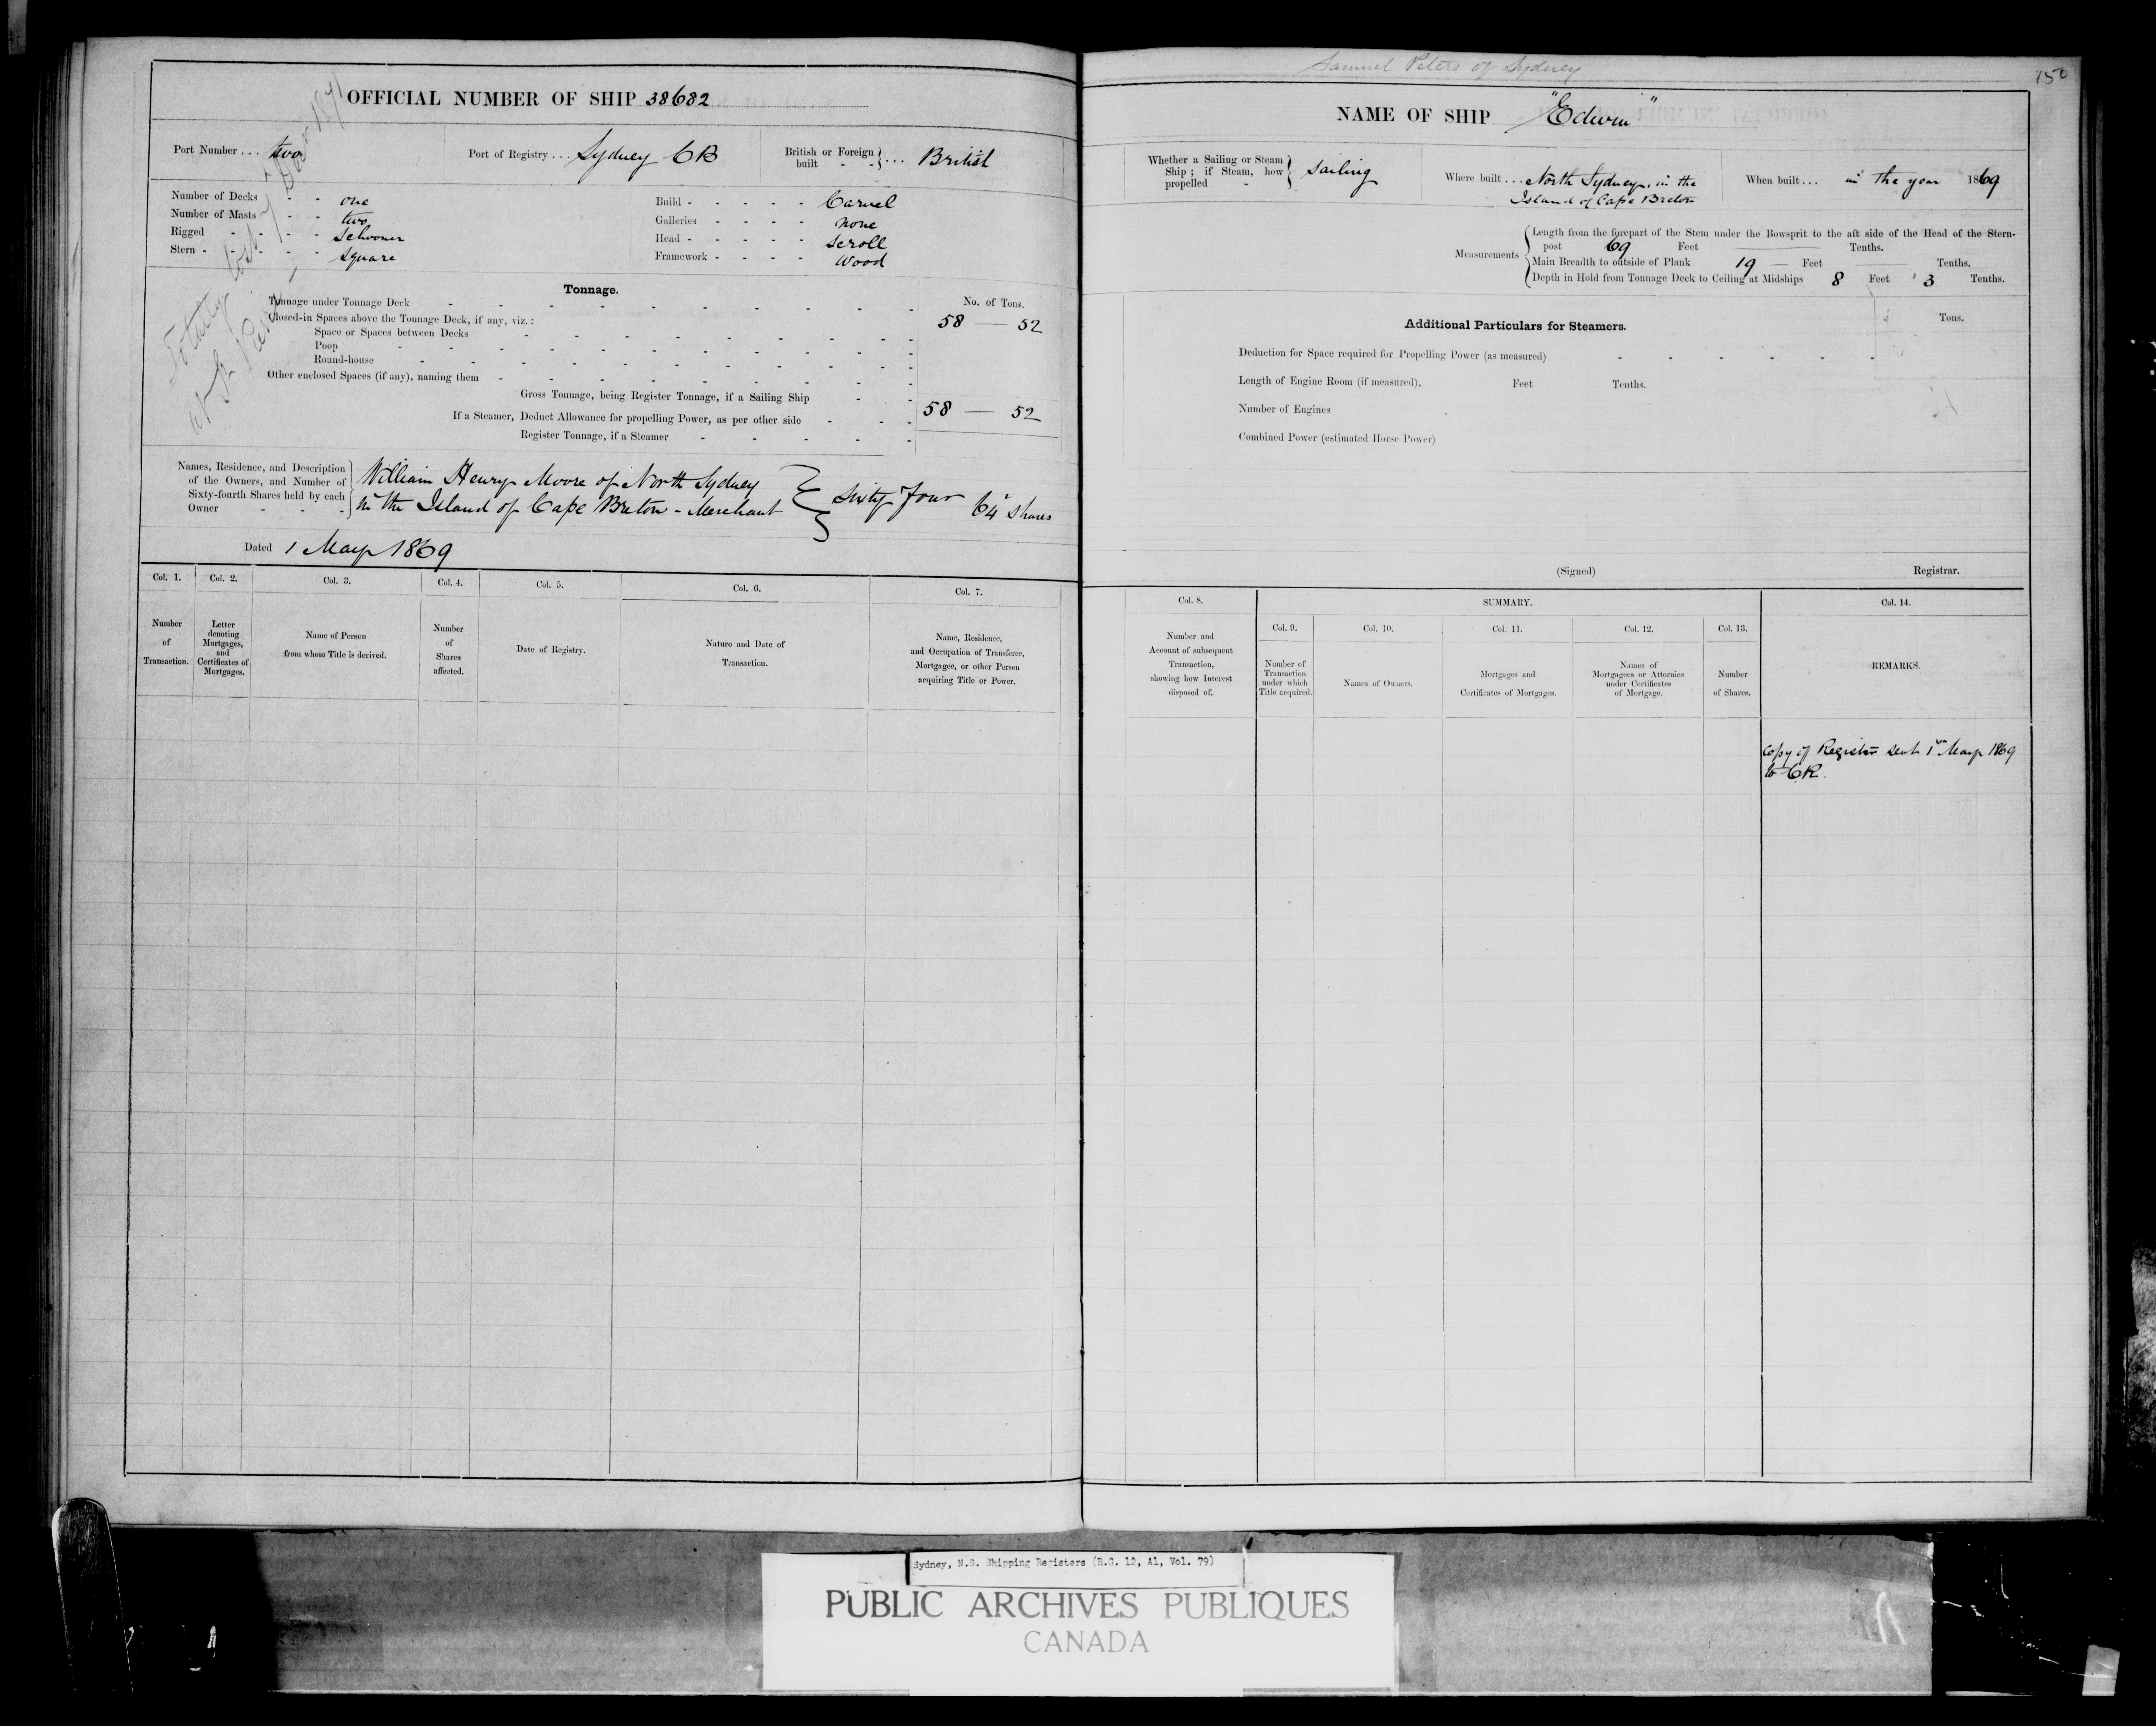 OFFICIAL NUMBER OF SHIP 38682
Port Number ... two
Port of Registry ... Sydney CB
British or Foreign built - } ... British
Number of Decks - - one
Number of Masts - - two
Rigged - - - - Schooner
Stern - - - - - Square
Build - - - - - Carvel
Galleries - - - - none
Head - - - - - Scroll
Framework - - - - Wood
Totally lost
1871
Tonnage.
No. of Tons.
Tonnage under Tonnage Deck 58 — 52
Closed-in Spaces above the Tonnage Deck, if any, viz. :
Space or Spaces between Decks
Poop
Round-house
Other enclosed Spaces (if any), naming them
Gross Tonnage, being Register Tonnage, if a Sailing Ship 58 — 52
If a Steamer, Deduct Allowance for propelling Power, as per other side
Register Tonnage, if a Steamer
Names, Residence, and Description
of the Owners, and Number of
Sixty-fourth Shares held by each
Owner - - -
William Henry Moore of North Sydney
in the Island of Cape Breton - Merchant } Sixty four 64 Shares
Dated 1 May 1869
Col. 1. Col. 2. Col. 3. Col. 4. Col. 5. Col. 6. Col. 7.
Number of Transaction.
Letter denoting Mortgages, and Certificates of Mortgages.
Name of Person from whom Title is derived.
Number of Shares affected.
Date of Registry.
Nature and Date of Transaction.
Name, Residence, and Occupation of Transferee, Mortgagee, or other Person acquiring Title or Power.
Samuel Peters of Sydney
150
NAME OF SHIP "Edwin"
Whether a Sailing or Steam
Ship ; if Steam, how
propelled - } Sailing
Where built ... North Sydney, in the
Island of Cape Breton
When built ... in the year 1869
Measurements
Length from the forepart of the Stem under the Bowsprit to the aft side of the Head of the Stern-
post 69 Feet — Tenths.
Main Breadth to outside of Plank 19 — Feet — Tenths.
Depth in Hold from Tonnage Deck to Ceiling at Midships 8 Feet 3 Tenths.
Additional Particulars for Steamers.
Tons.
Deduction for Space required for Propelling Power (as measured)
Length of Engine Room (if measured), Feet Tenths.
Number of Engines
Combined Power (estimated Horse Power)
(Signed) Registrar.
Col. 8. SUMMARY. Col. 14.
Col. 9. Col. 10. Col. 11. Col. 12. Col. 13.
Number and Account of subsequent Transaction, showing how Interest disposed of.
Number of Transaction under which Title acquired.
Names of Owners.
Mortgages and Certificates of Mortgages.
Names of Mortgagees or Attornies under Certificates of Mortgage.
Number of Shares.
REMARKS.
Copy of Register sent 1st May 1869
to CR.
Sydney, N.S. Shipping Registers (R.G. 12, A1, Vol. 79)
PUBLIC ARCHIVES PUBLIQUES
CANADA